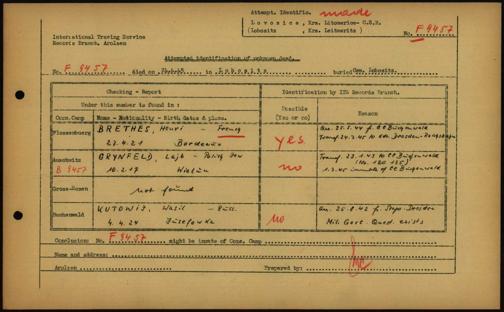 Attempt. Identific. made
Lovosice, Krs. Litomerice- C.S.R.
(Lobositz , Krs. Leitmeritz )
International Tracing Service
Records Branch, Arolsen
No. F 9457
Attempted identification of unknown dead.
No. F 9457 died on in Lobositz buried Cem. Lobositz.
Checking - Report
Identification by ITS Records Branch.
Under this number is found in :
Possible
(Yes or no)
Reason
Conc.Camp
Name - Nationality - Birth dates & place.
Flossenburg
BRETHES, Henri - French
27.4.21 Bordeaux
yes
Arr. 25.1.44 f. CC Buchenwald
Transf. 24.3.45 to Kdo. Dresden-
Auschwitz
B 9457
GRYNFELD, Lajb - Polish Jew
10.2.17 Wielun
no
Transf. 23.1.45 to CC Buchenwald
(No. 120 125)
1.3.45 inmate of CC Buchenwald
Gross-Rosen
not found
Buchenwald
KUTOWIJ, Wasil - Russ.
4.4.24 Jusefowka
no
Arr. 25.8.42 f. Stapo Dresden
Mil. Govt. Quest. exists
Conclusion: No. F 9457 might be inmate of Conc. Camp
Name and address:
Arolsen Prepared by: